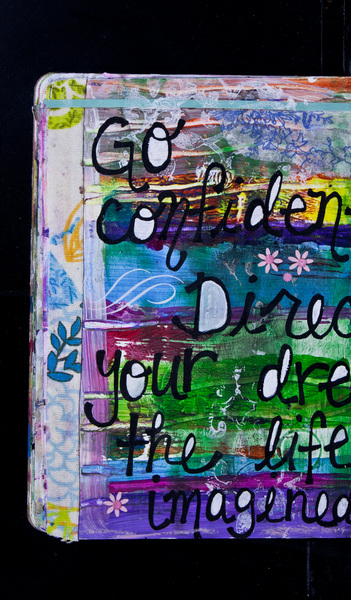 Go
confiden
Direc
your dre
the life
imagined